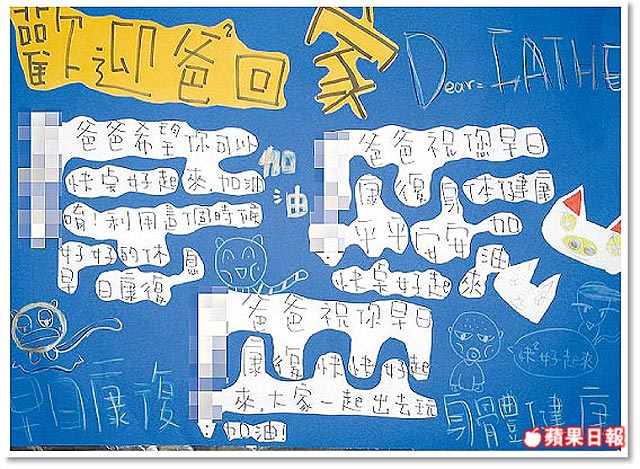 歡迎爸²回家 Dear= FATHE
爸爸希望你可以
快奌好起來,加油
唷!利用這個時候
好好的休息
早日康復
加油
爸爸祝您早日
康復身体健康
平平安安加油
快奌好起來
爸爸祝你早日
康復快快好起
來,大家一起出去玩
加油!
快²好起來
早日康復
身體健康
蘋果日報